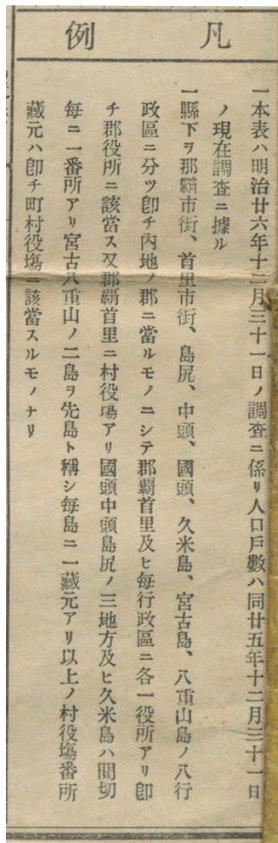 凡例
一本表ハ明治廿六年十二月三十一日ノ調査ニ係リ人口戸數ハ同廿五年十二月三十一日
ノ現在調査ニ據ル
一縣下ヲ那覇市街、首里市街、島尻、中頭、國頭、久米島、宮古島、八重山島ノ八行
政區ニ分ツ卽チ內地ノ郡ニ當ルモノニシテ郡覇首里及ヒ每行政區ニ各一役所アリ卽
チ郡役所ニ該當ス又郡覇首里ニ村役塲アリ國頭中頭島尻ノ三地方及ヒ久米島ハ間切
每ニ一番所アリ宮古八重山ノ二島ヲ先島ト稱シ每島ニ一藏元アリ以上ノ村役塲番所
藏元ハ卽チ町村役塲ニ該當スルモノナリ